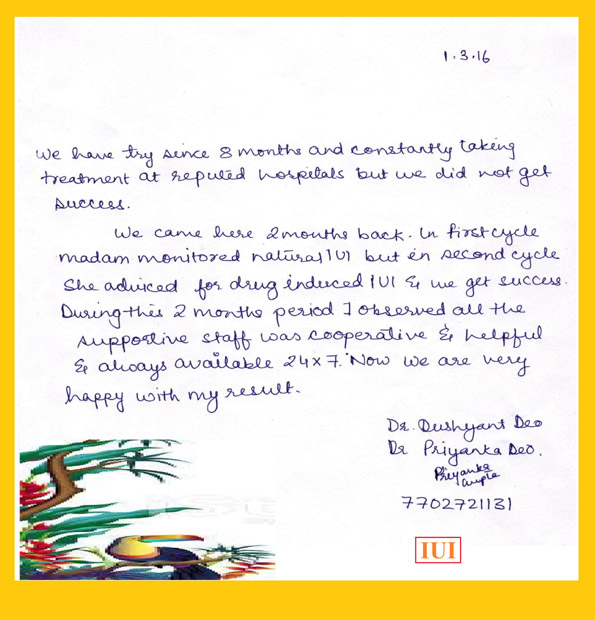 1.3.16
We have try since 8 months and constantly taking
treatment at reputed hospitals but we did not get
success.
We came here 2 months back. In first cycle
madam monitored natural IUI but in second cycle
She adviced for drug induced IUI & we get success.
During this 2 months period I observed all the
supportive staff was cooperative & helpful
& always available 24x7. Now we are very
happy with my result.
Dr. Dushyant Deo
Dr Priyanka Deo.
Priyanka
7702721131
IUI